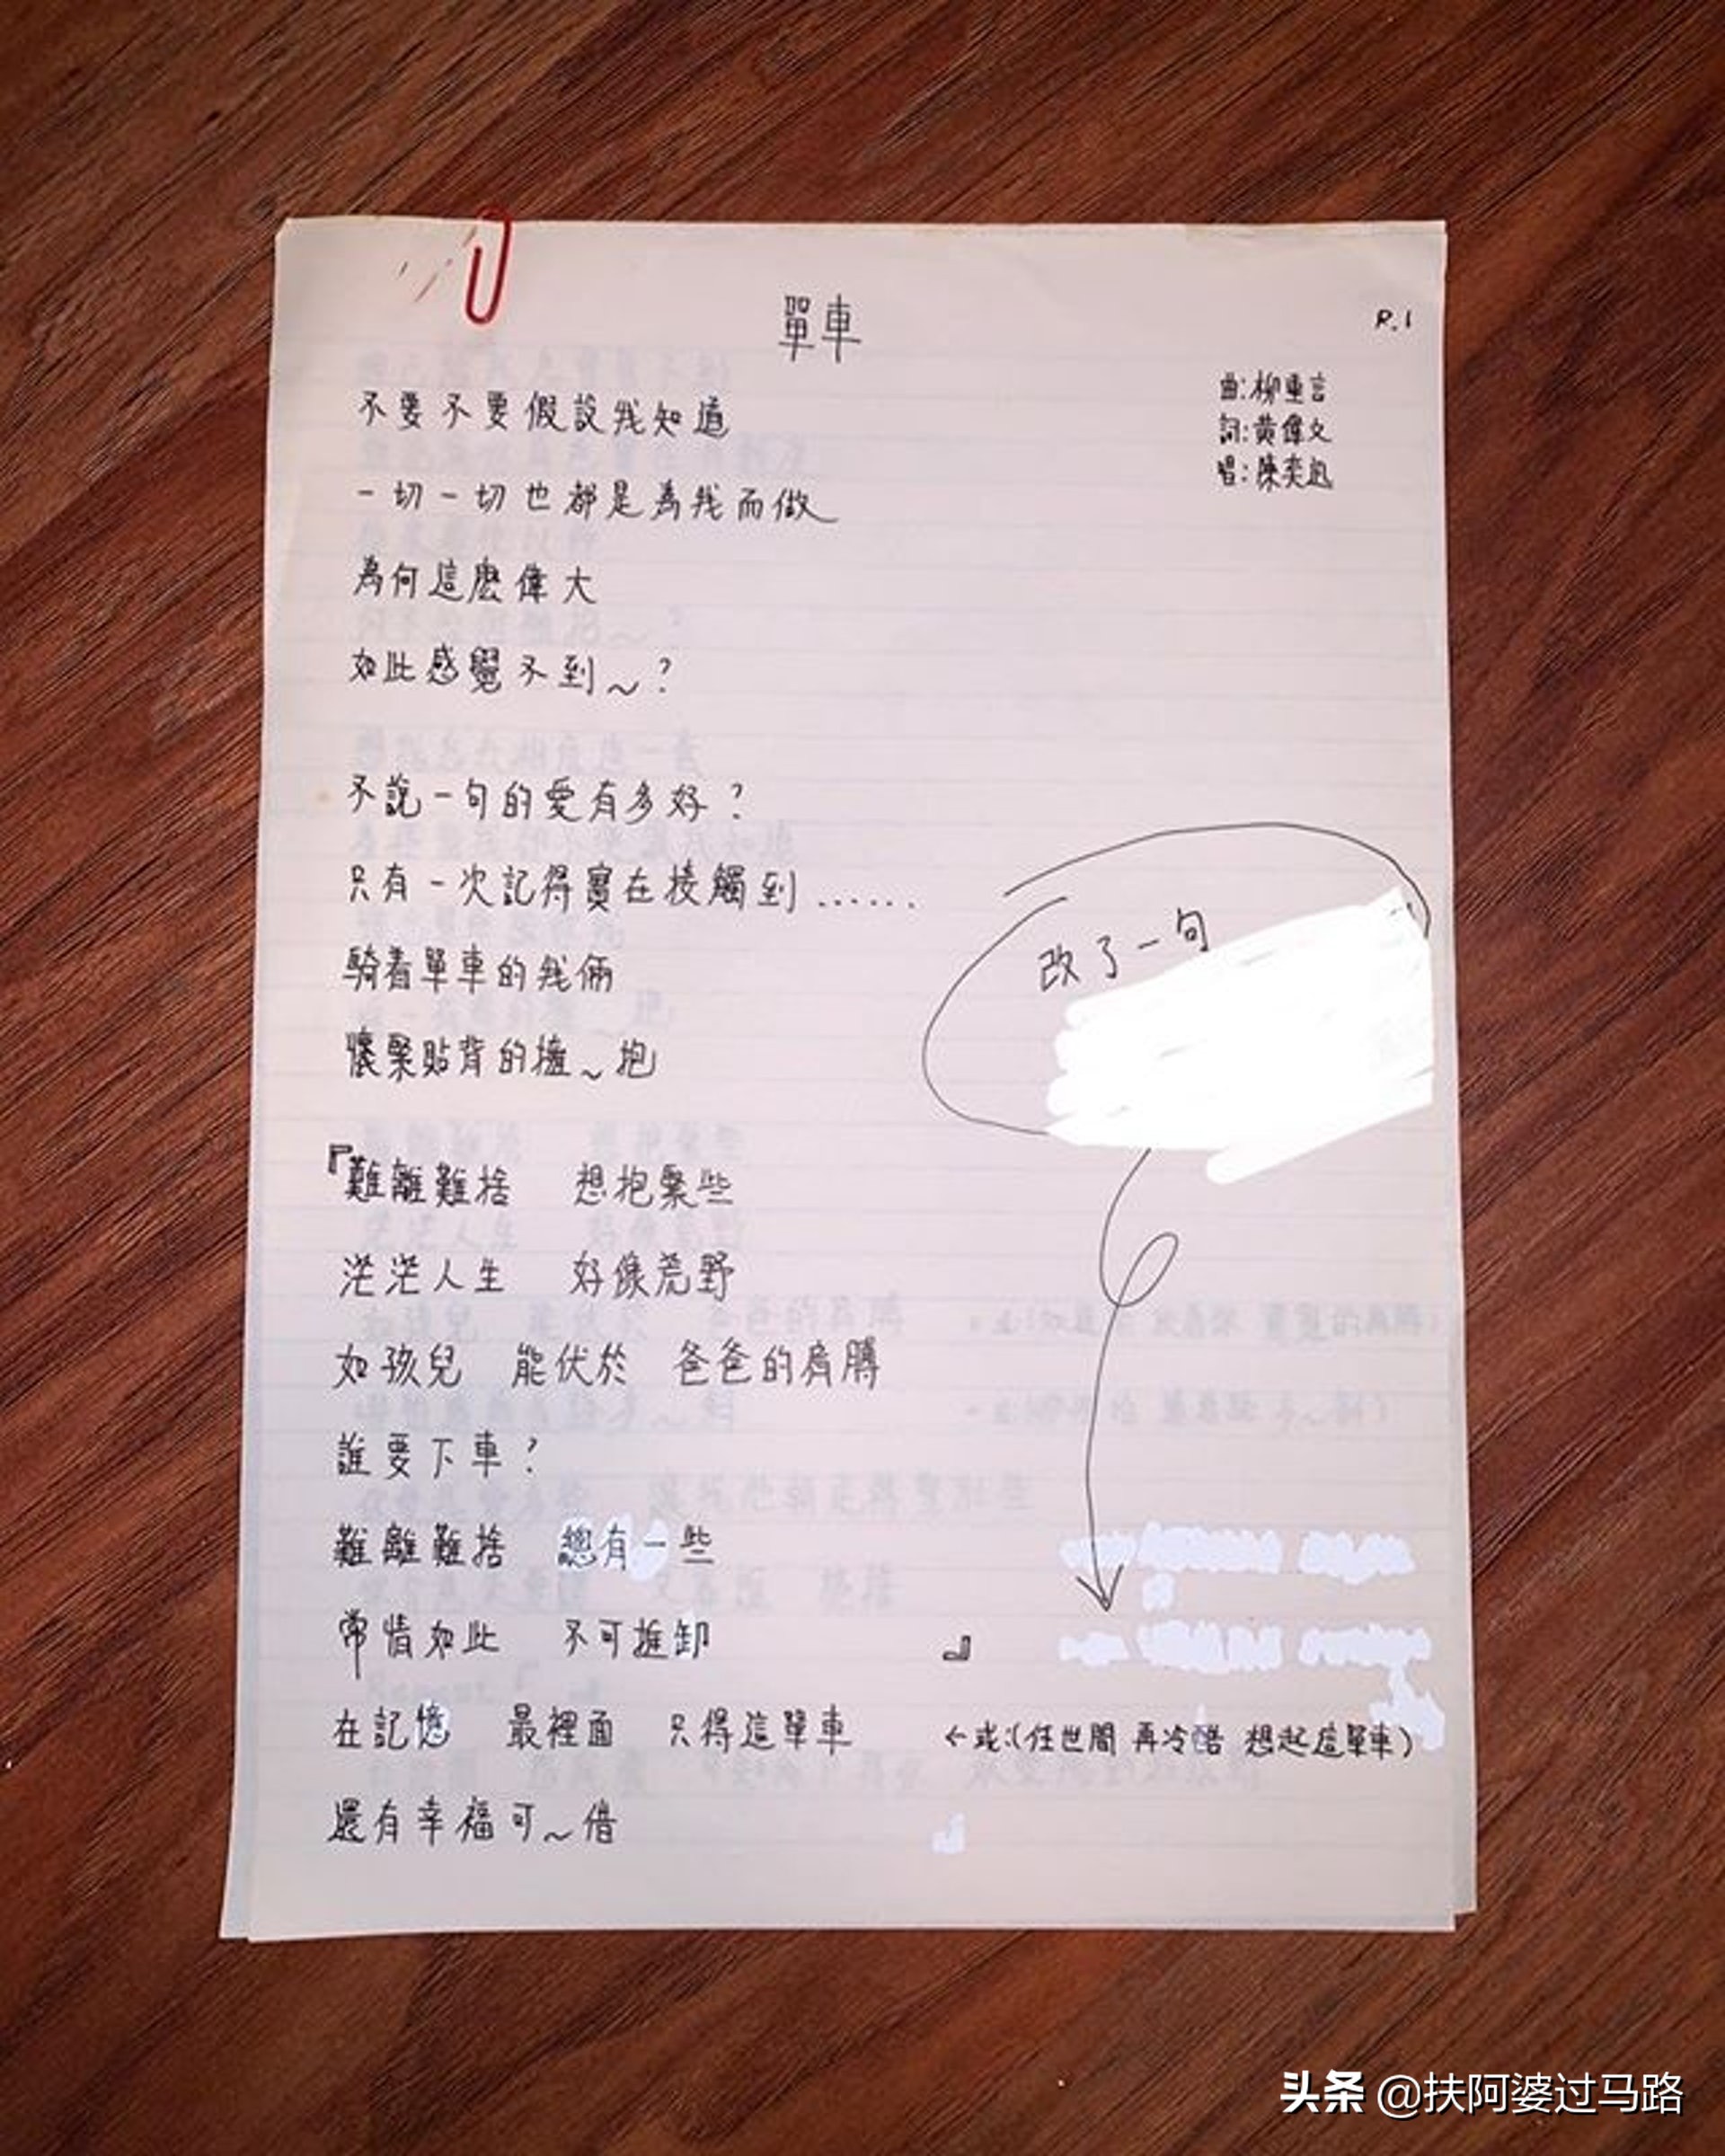 單車
P.1
曲:柳重言
詞:黃偉文
唱:陳奕迅
不要不要假設我知道
一切一切也都是為我而做
為何這麼偉大
如此感覺不到～?
不說一句的愛有多好?
只有一次記得實在接觸到......
騎着單車的我倆
懷緊貼背的擁～抱
改了一句
『難離難捨 想抱緊些
茫茫人生 好像荒野
如孩兒 能伏於 爸爸的肩膊
誰要下車?
難離難捨 總有一些
常情如此 不可推卸 』
在記憶 最裡面 只得這單車 ←或:(任世間 再冷酷 想起這單車)
還有幸福可～借
头条 @扶阿婆过马路